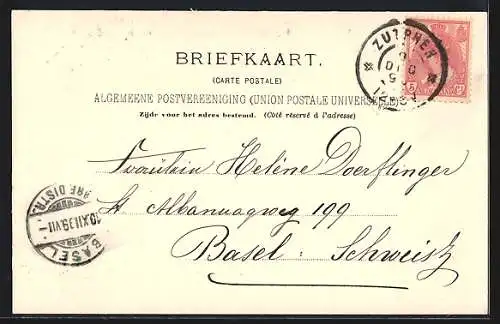 BRIEFKAART.
(CARTE POSTALE)
ALGEMEENE POSTVEREENIGING (UNION POSTALE UNIVERSELLE)
Zijde voor het adres bestemd. (Côté réservé à l'adresse)
ZUTPHEN
5
Fräulein Helène Doerflinger
St Albanvagweg 199
Basel: Schweiz
BASEL
10.XII.99.VII
BRF DISTR.